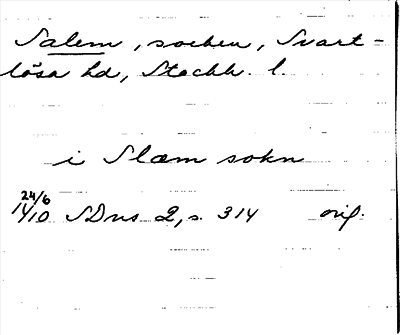 Salem, socken, Svart-
lösa hd, Stockh. l.
i Slæm sokn
24/6
1410 SDns 2, s. 314 orig.